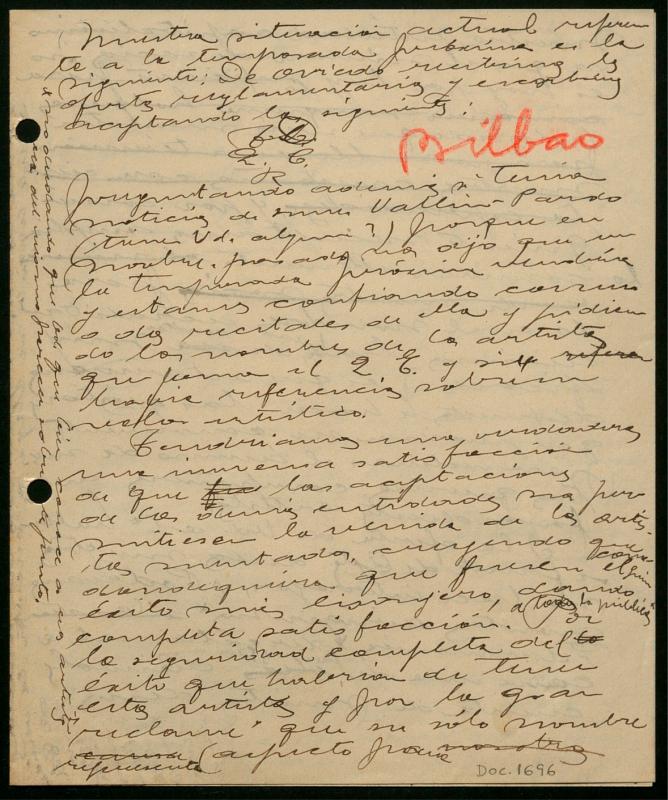 Nuestra situacion actual referen
te a la temporada próxima es la
siguiente: De Oviedo recibimos la
oferta reglamentaria y escribimos
aceptando lo siguiente:
Q. E.
Bilbao
preguntando además si tenia
noticia de Vallin-Pardo
(tiene Vd. alguna?) porque en
novbre. pasado nos dijo que en
la temporada próxima vendria
y estamos confiando
o dos recitales de ella y pidien
do los nombres de los artistas
que forma el Q. E. y
referencias sobre su
valor artístico.
Tendriamos una verdadera
una inmensa satisfacción
de que las aceptaciones
de las demás entidades nos per
mitiesen la venida de los artis-
tas mentados, creyendo que
dondequiera que fuesen
éxito más lisonjero, dando
completa satisfacción a todos los públicos
la seguridad completa del
éxito que habrian de tener
estos artistas y por la gran
"reclame" que su sólo nombre
representa (aspecto para nosotros
no dudando que Vd. que tan bien conoce a los artistas
será del mismo parecer sobre este punto.
Doc. 1696